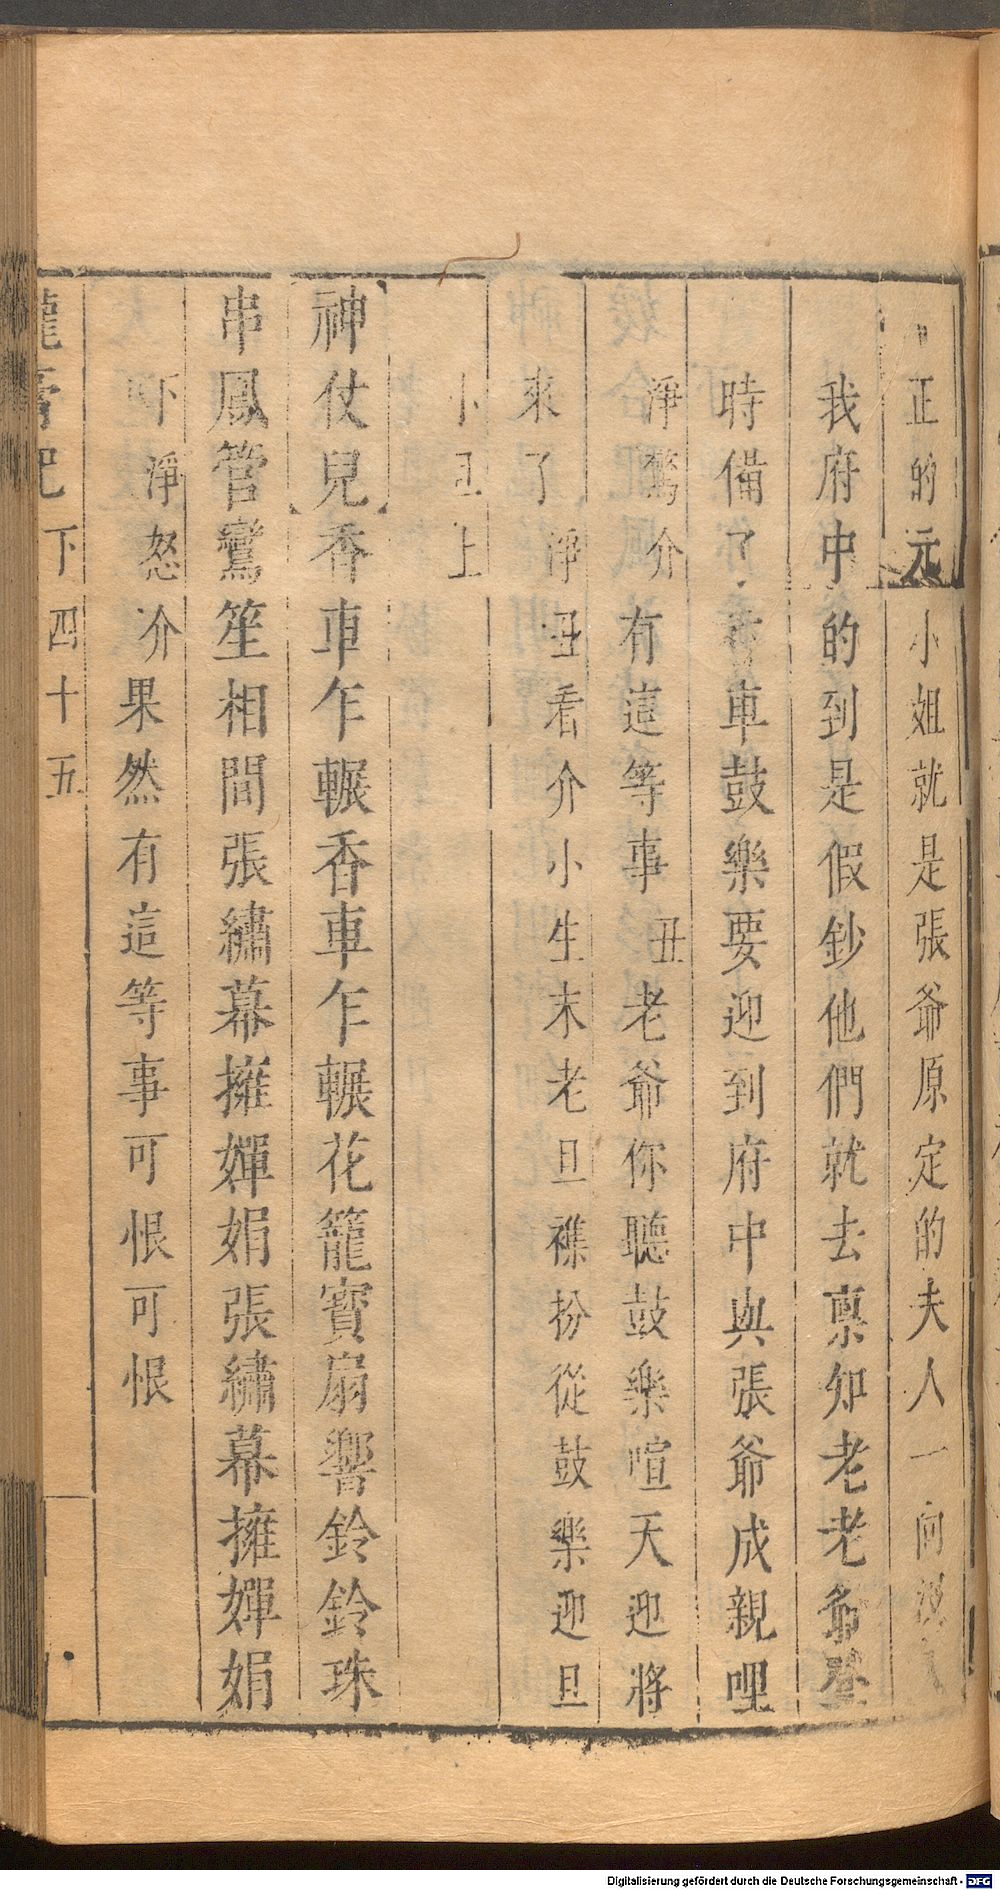 正的元小姐就是張爺原定的夫人一向
我府中的到是假鈔他們就去禀知老老爺登
時備了香車鼓樂要迎到府中與張爺成親哩
淨驚介有這等事丑老爺你聽鼓樂喧天迎將
來了淨丑看介小生末老旦襍扮從鼓樂迎旦
小丑上
神仗兒香車乍輾香車乍輾花籠寶扇響鈴鈴珠
串鳳管鸞笙相間張繡幕擁嬋娟張繡幕擁嬋娟
下淨怒介果然有這等事可恨可恨
龍膏記 下 四十五
Digitalisierung gefördert durch die Deutsche Forschungsgemeinschaft - DFG